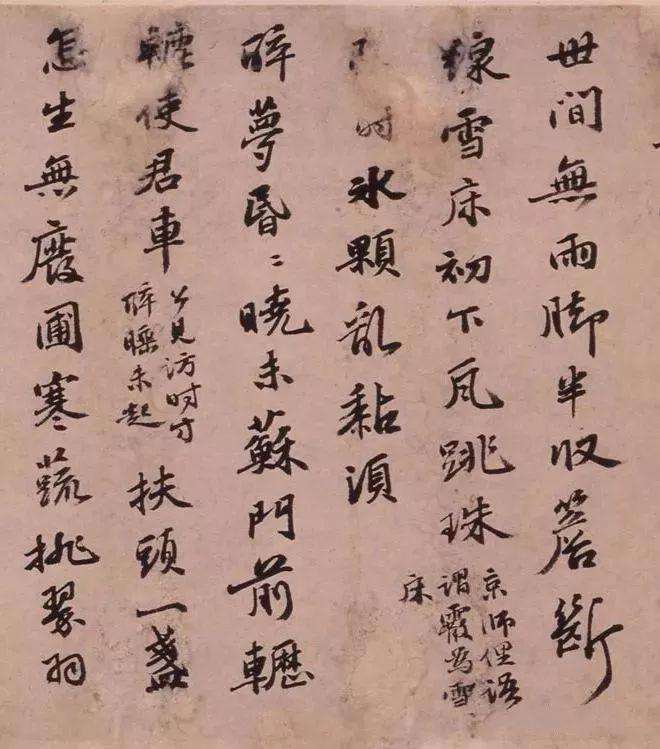 世間無雨脚半收簷斷
線雪床初下瓦跳珠京師俚語謂霰為雪床
时冰顆乱黏須
醉夢昏〻曉未蘇門前轣
轆使君車公見訪时方醉睡未起扶頭一盞
怎生無廢圃寒蔬挑翠羽